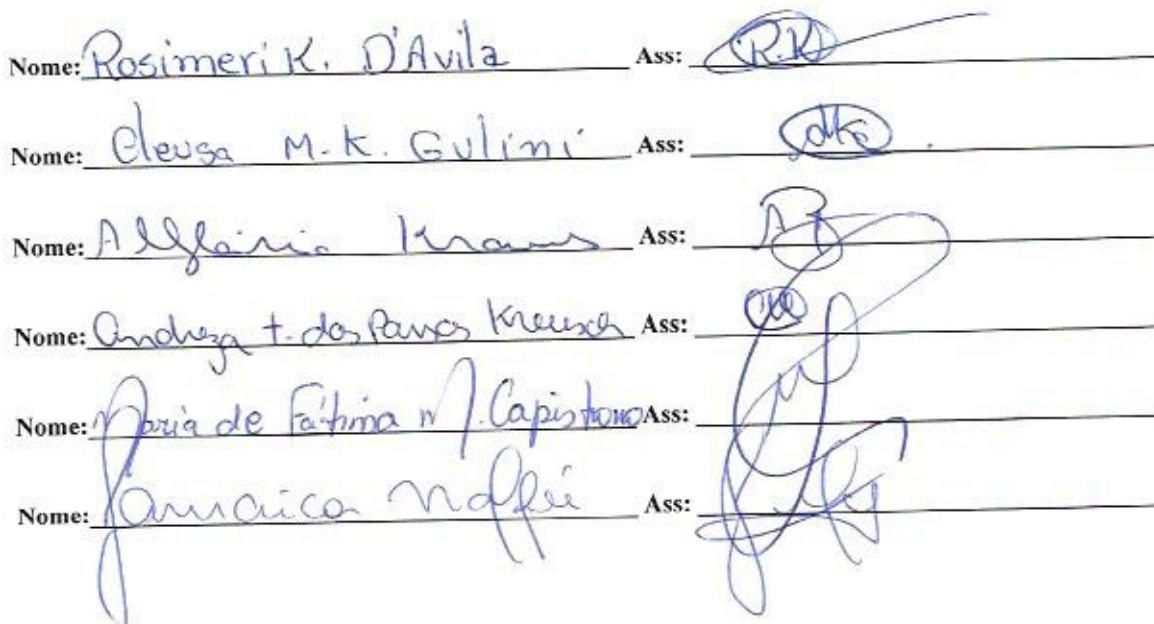 Nome: Rosimeri K. D'Avila Ass: R.K
Nome: Cleusa M.K. Gulini Ass:
Nome: Kraus Ass:
Nome: Andreza t. dos Kreusch Ass:
Nome: Maria de Fátima M. Capistrano Ass:
Nome: Maffei Ass: